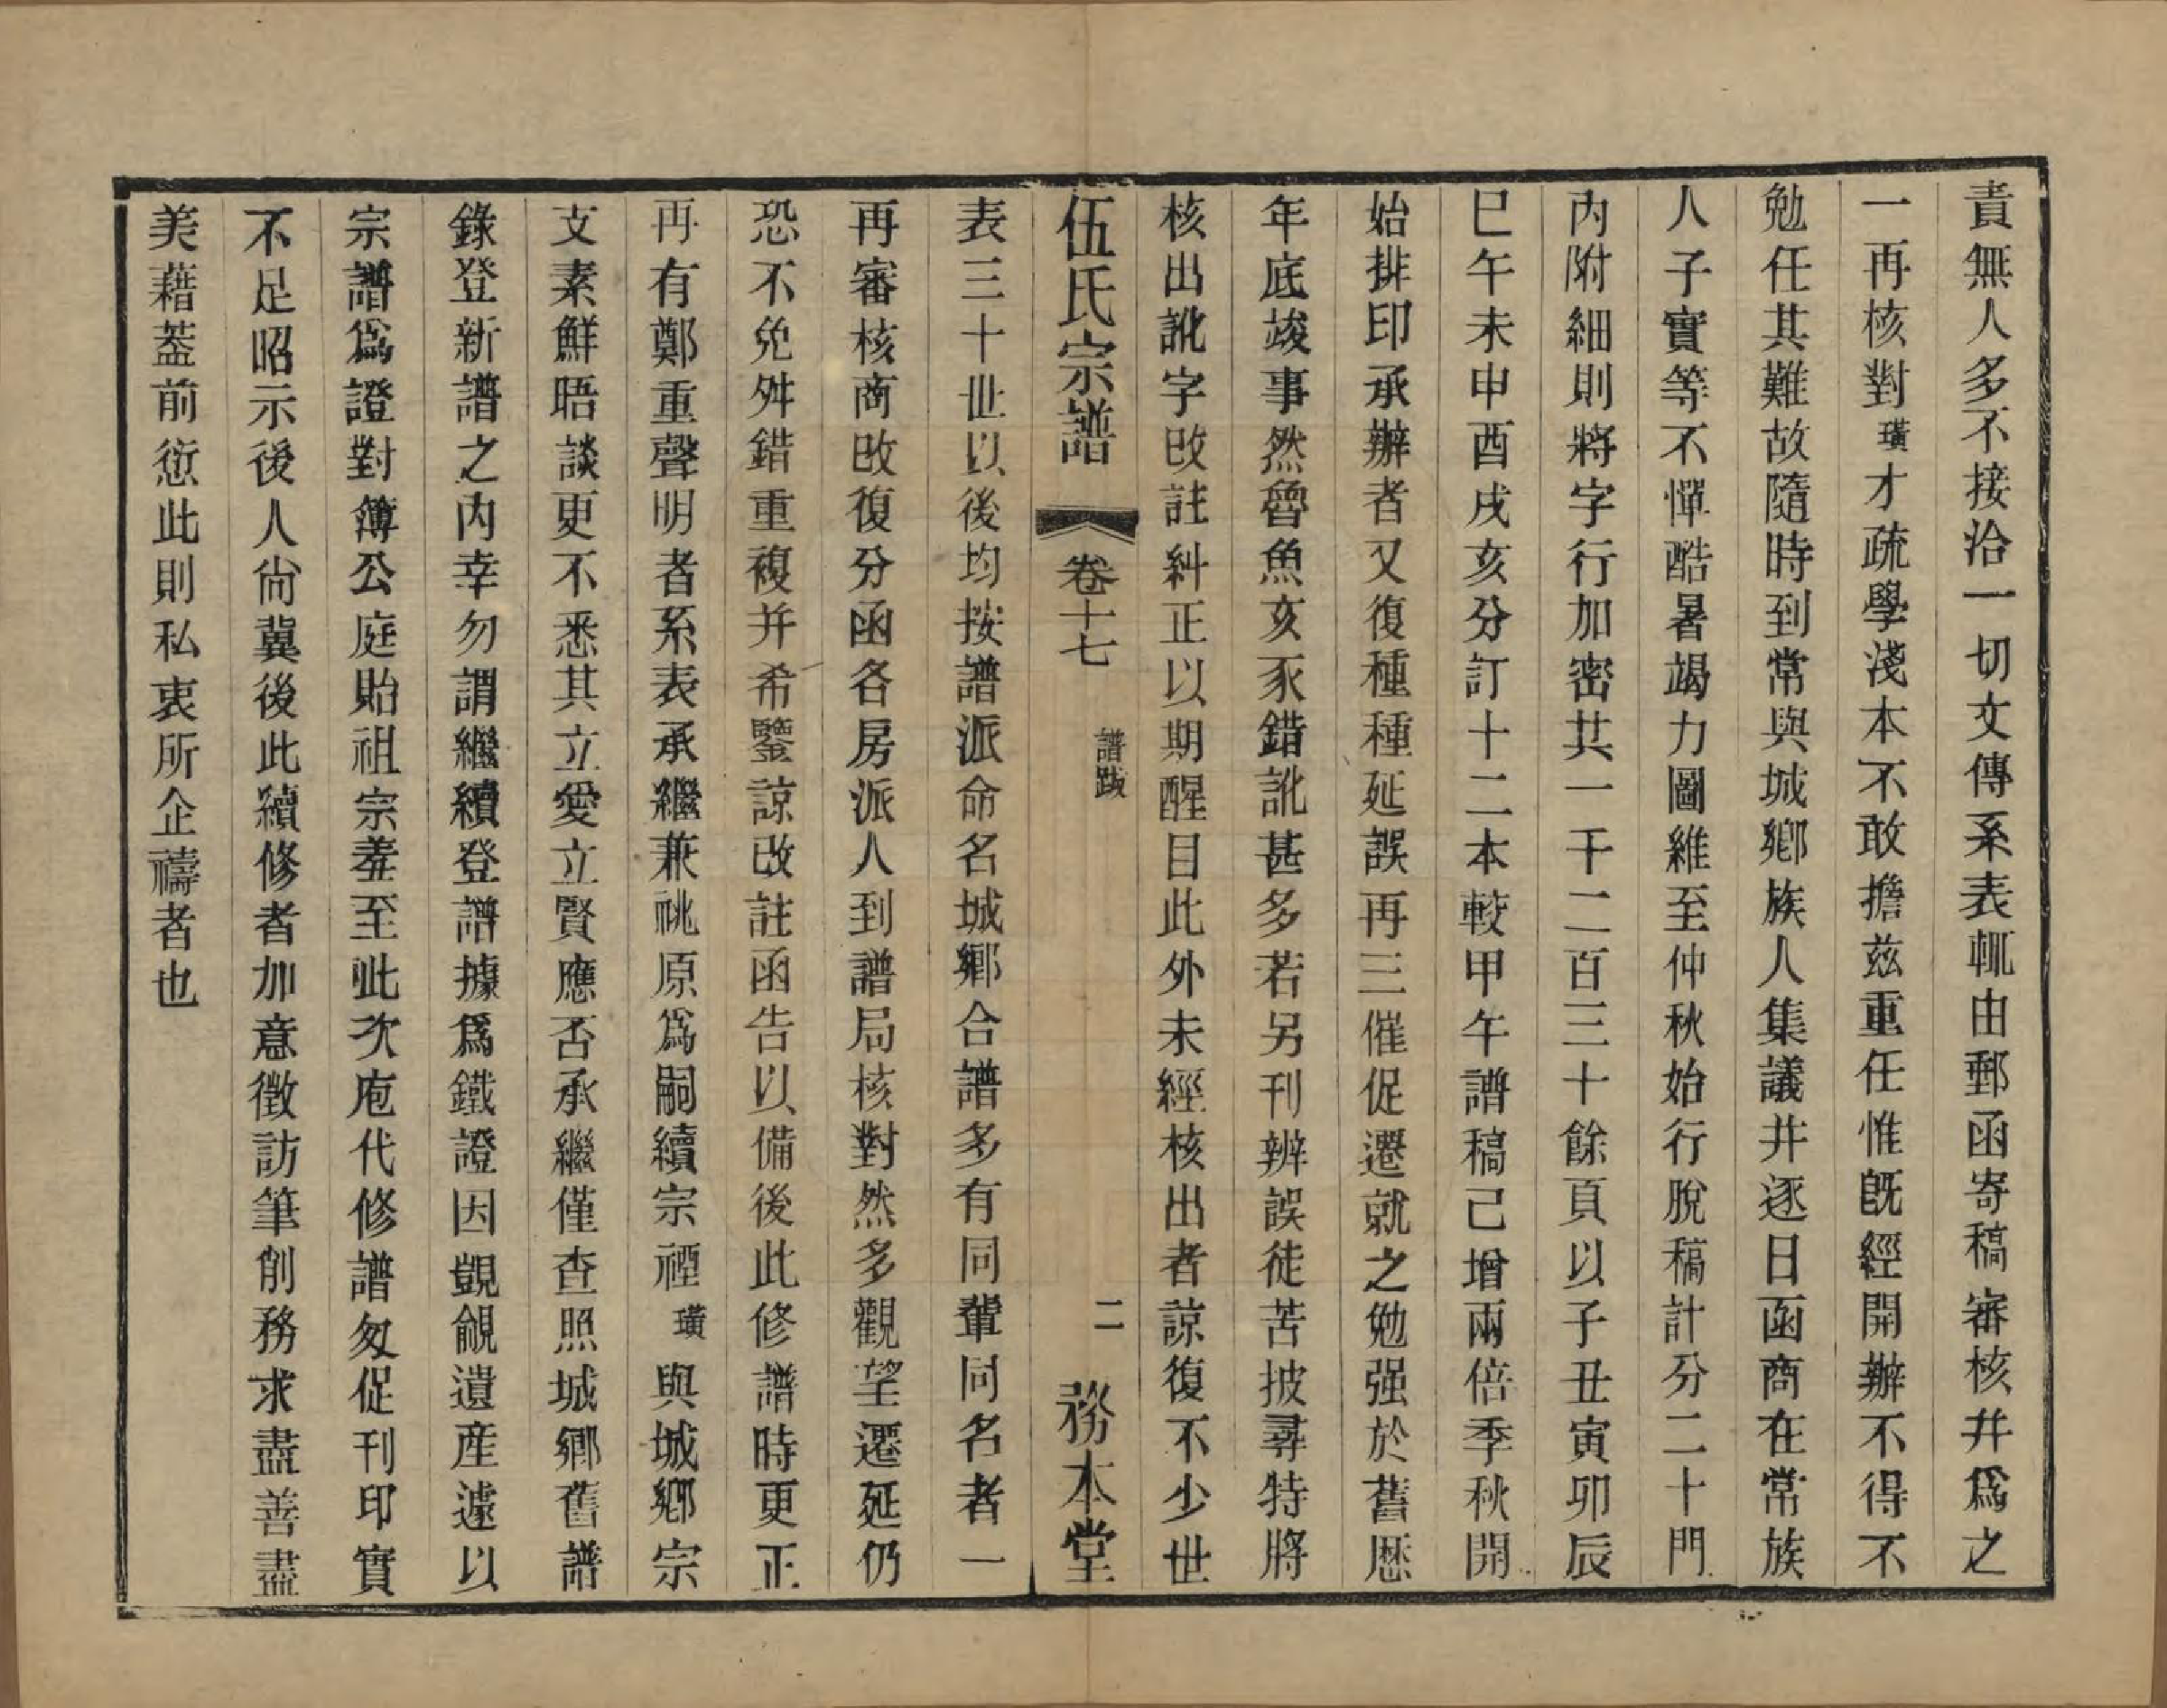 責無人多不接洽一切文傳系表輒由郵函寄稿審核幷爲之
一再核對璜才疏學淺本不敢擔茲重任惟旣經開辦不得不
勉任其難故隨時到常與城鄕族人集議幷逐日函商在常族
人子實等不憚酷暑竭力圖維至仲秋始行脫稿計分二十門
內附細則將字行加密共一千二百三十餘頁以子丑寅卯辰
巳午未申酉戌亥分訂十二本較甲午譜稿已增兩倍季秋開
始排印承辦者又復種種延誤再三催促遷就之勉强於舊歷
年底竣事然魯魚亥豕錯訛甚多若另刊辨誤徒苦披尋特將
核出訛字改註糾正以期醒目此外未經核出者諒復不少世
伍氏宗譜 卷十七 譜跋 二 務本堂
表三十世以後均按譜派命名城鄕合譜多有同輩同名者一
再審核商改復分函各房派人到譜局核對然多觀望遷延仍
恐不免舛錯重複并希鑒諒改註函告以備後此修譜時更正
再有鄭重聲明者系表承繼兼祧原爲嗣續宗禋璜與城鄕宗
文素鮮晤談更不悉其立愛立賢應否承繼僅查照城鄕舊譜
錄登新譜之內幸勿謂繼續登譜據爲鐵證因覬覦遺産遽以
宗譜爲證對簿公庭貽祖宗羞至此次庖代修譜匆促刊印實
不足昭示後人尙冀後此續修者加意徵訪筆削務求盡善盡
美藉葢前愆此則私衷所企禱者也